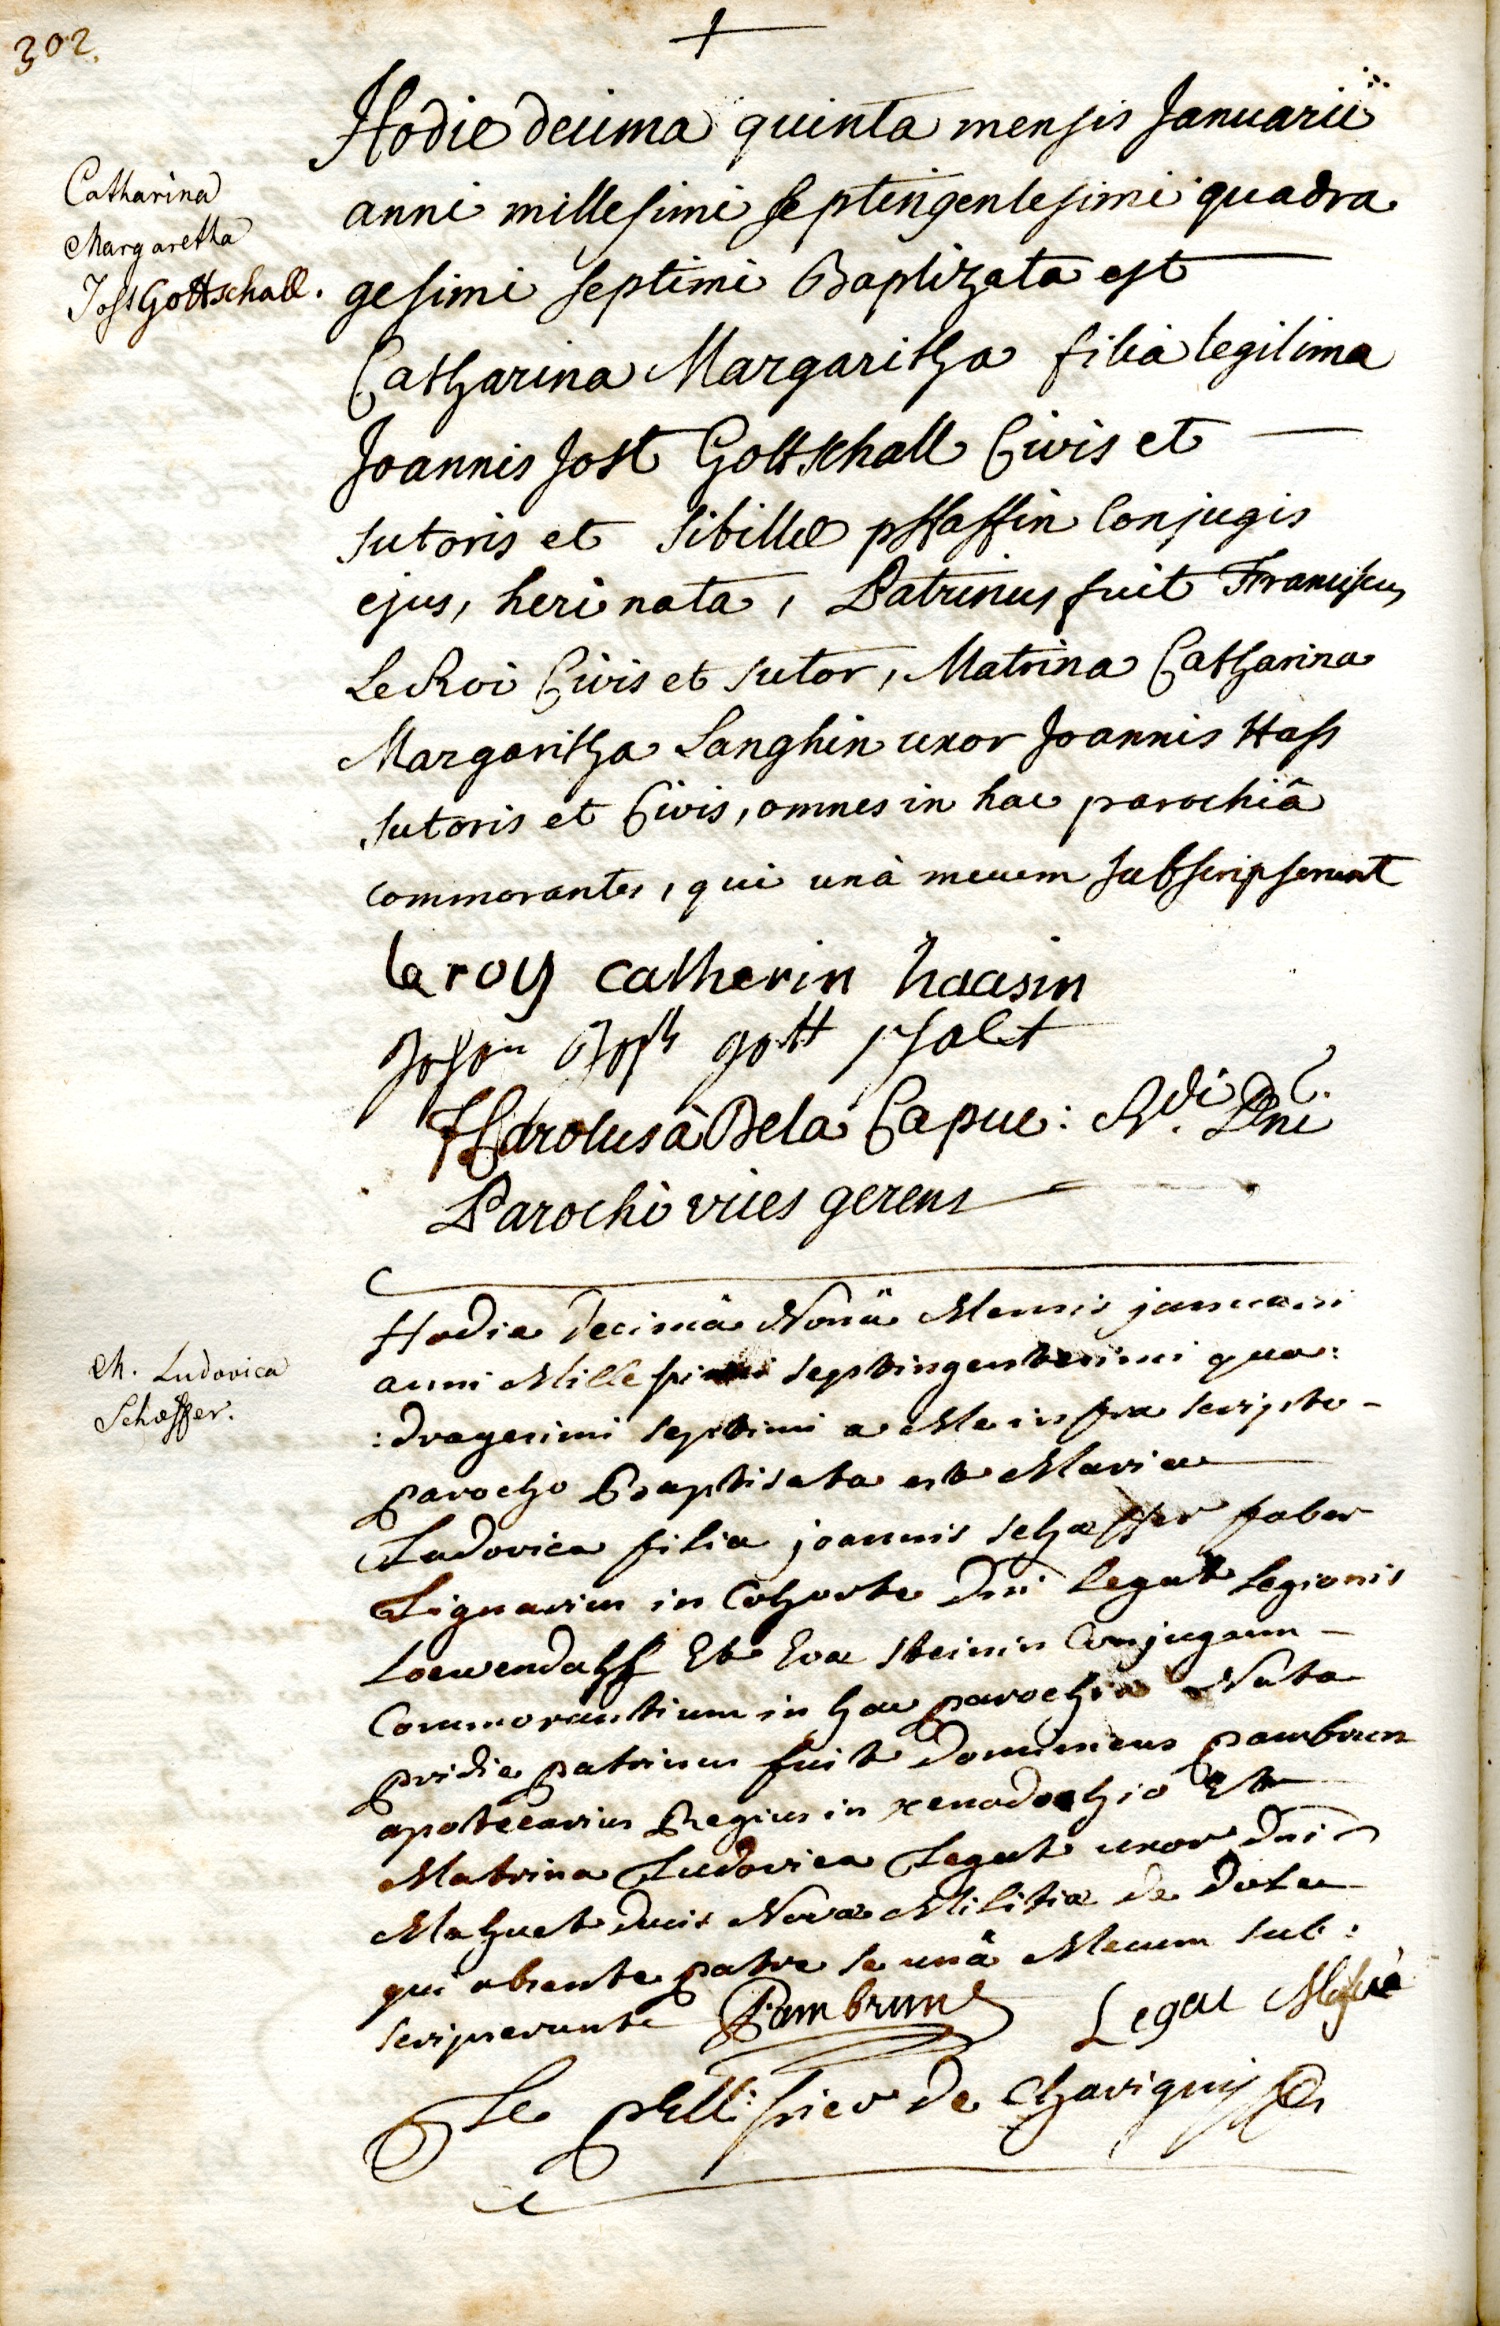 302.
Catharina
Margaretha
Jost Gottschall.
Hodie decima quinta mensis Januarii
anni millesimi septingentesimi quadra
gesimi septimi Baptizata est
Catharina Margaritha filia legitima
Joannis Jost Gottschall Civis et
sutoris et Sibillæ pffaffin Conjugis
ejus, heri nata, Patrinus fuit Franciscus
Le Roi Civis et sutor, Matrina Catharina
Margaritha Langhin uxor Joannis Hass
sutoris et Civis, omnes in hac parochiâ
commorantes, qui unà mecum subscripserunt
leroy catherin haasin
Johan Jost gott schalt
F Carolus à Bela Capuc: Rdi Dni
Parochi vices gerens
M. Ludovica
Schæffer.
Hodie decimâ Nonâ Mensis januarii
anni Millesimi septingentesimi qua:
:dragesimi septimi a Me infra scripto
parocho Baptisata est Maria
Ludovica filia joannis schæffer faber
Lignarius in Cohorte Dni legat Legionis
Loewendahl Et Eva steinin Conjugum
Commorantium in hac parochia Nata
pridie patrinus fuit Dominicus pambrun
apotecarius Regius in xenodochio Et
Matrina Ludovica Legat uxor Dni
Mahuet Ducis Novæ Militiæ de Dole
qui absente patre se unâ Mecum sub:
scripserunt Pambrun Legat Mahuè
Le pellissier de Chavigny